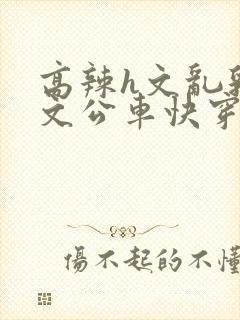 高辣h文亂
文公車快穿
傷不起的不懂